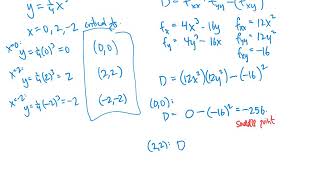 y = ¼x³
x = 0, 2, -2
critical pts
x=0: y = ¼(0)³ = 0
(0,0)
x=2: y = ¼(2)³ = 2
(2,2)
x=-2: y = ¼(-2)³ = -2
(-2,-2)
fₓ = 4x³ - 16y
fₓₓ = 12x²
f_y = 4y³ - 16x
f_yy = 12y²
f_xy = -16
D = (12x²)(12y²) - (-16)²
(0,0):
D = 0 - (-16)² = -256.
saddle point
(2,2): D